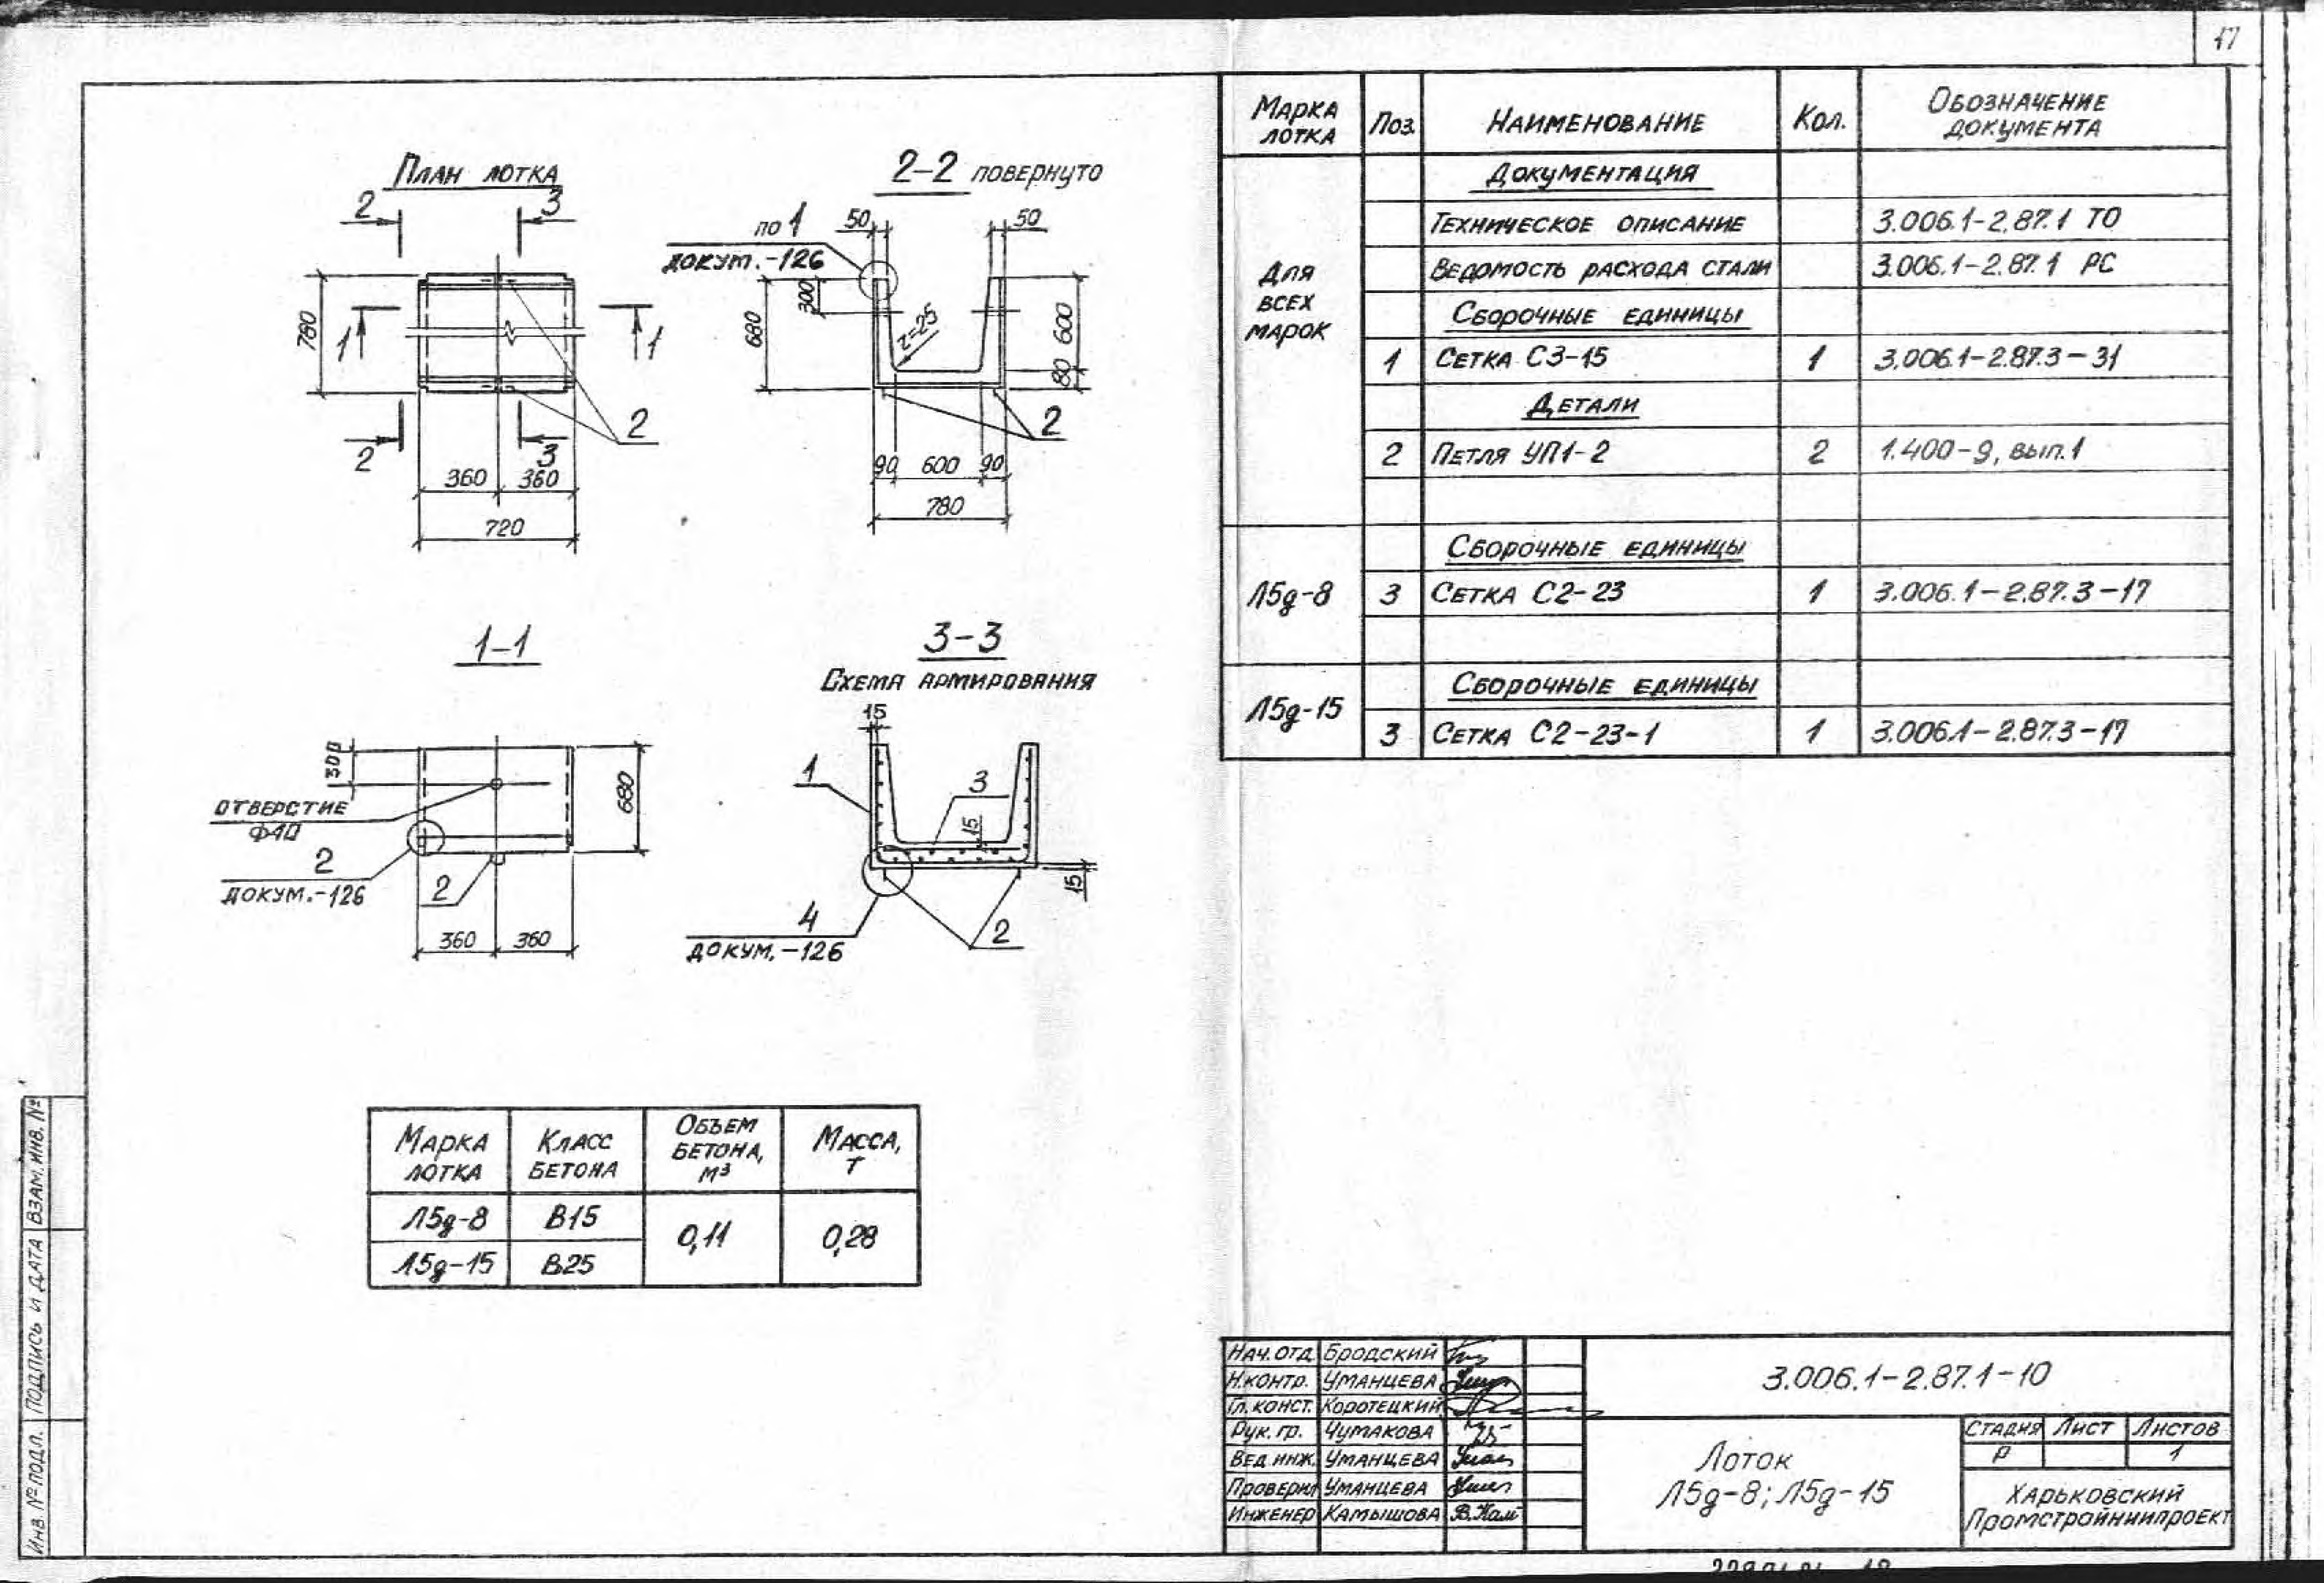 17
План лотка
2
3
780
1
1
2
2
3
360
360
720
2-2 повернуто
по 1
докум.-126
50
50
680
300
r=25
600
80
2
90
600
90
780
1-1
300
отверстие
Ф40
2
докум.-126
2
680
360
360
3-3
Схема армирования
15
1
3
15
15
4
докум.-126
2
Марка лотка
Класс бетона
Объем бетона, м³
Масса, т
Л5д-8
В15
0,11
0,28
Л5д-15
В25
Марка лотка
Поз.
Наименование
Кол.
Обозначение документа
Для всех марок
Документация
Техническое описание
3.006.1-2.87.1 ТО
Ведомость расхода стали
3.006.1-2.87.1 РС
Сборочные единицы
1
Сетка С3-15
1
3.006.1-2.87.3-31
Детали
2
Петля УП1-2
2
1.400-9, вып.1
Л5д-8
Сборочные единицы
3
Сетка С2-23
1
3.006.1-2.87.3-17
Л5д-15
Сборочные единицы
3
Сетка С2-23-1
1
3.006.1-2.87.3-17
Нач. отд
Бродский
Н.контр.
Уманцева
Гл. конст.
Коротецкий
Рук. гр.
Чумакова
Вед инж.
Уманцева
Проверил
Уманцева
Инженер
Камышова
3.006.1-2.87.1-10
Лоток
Л5д-8; Л5д-15
Стадия
Лист
Листов
Р
1
Харьковский
Промстройниипроект
Инв. № подл.
Подпись и дата
Взам. инв. №